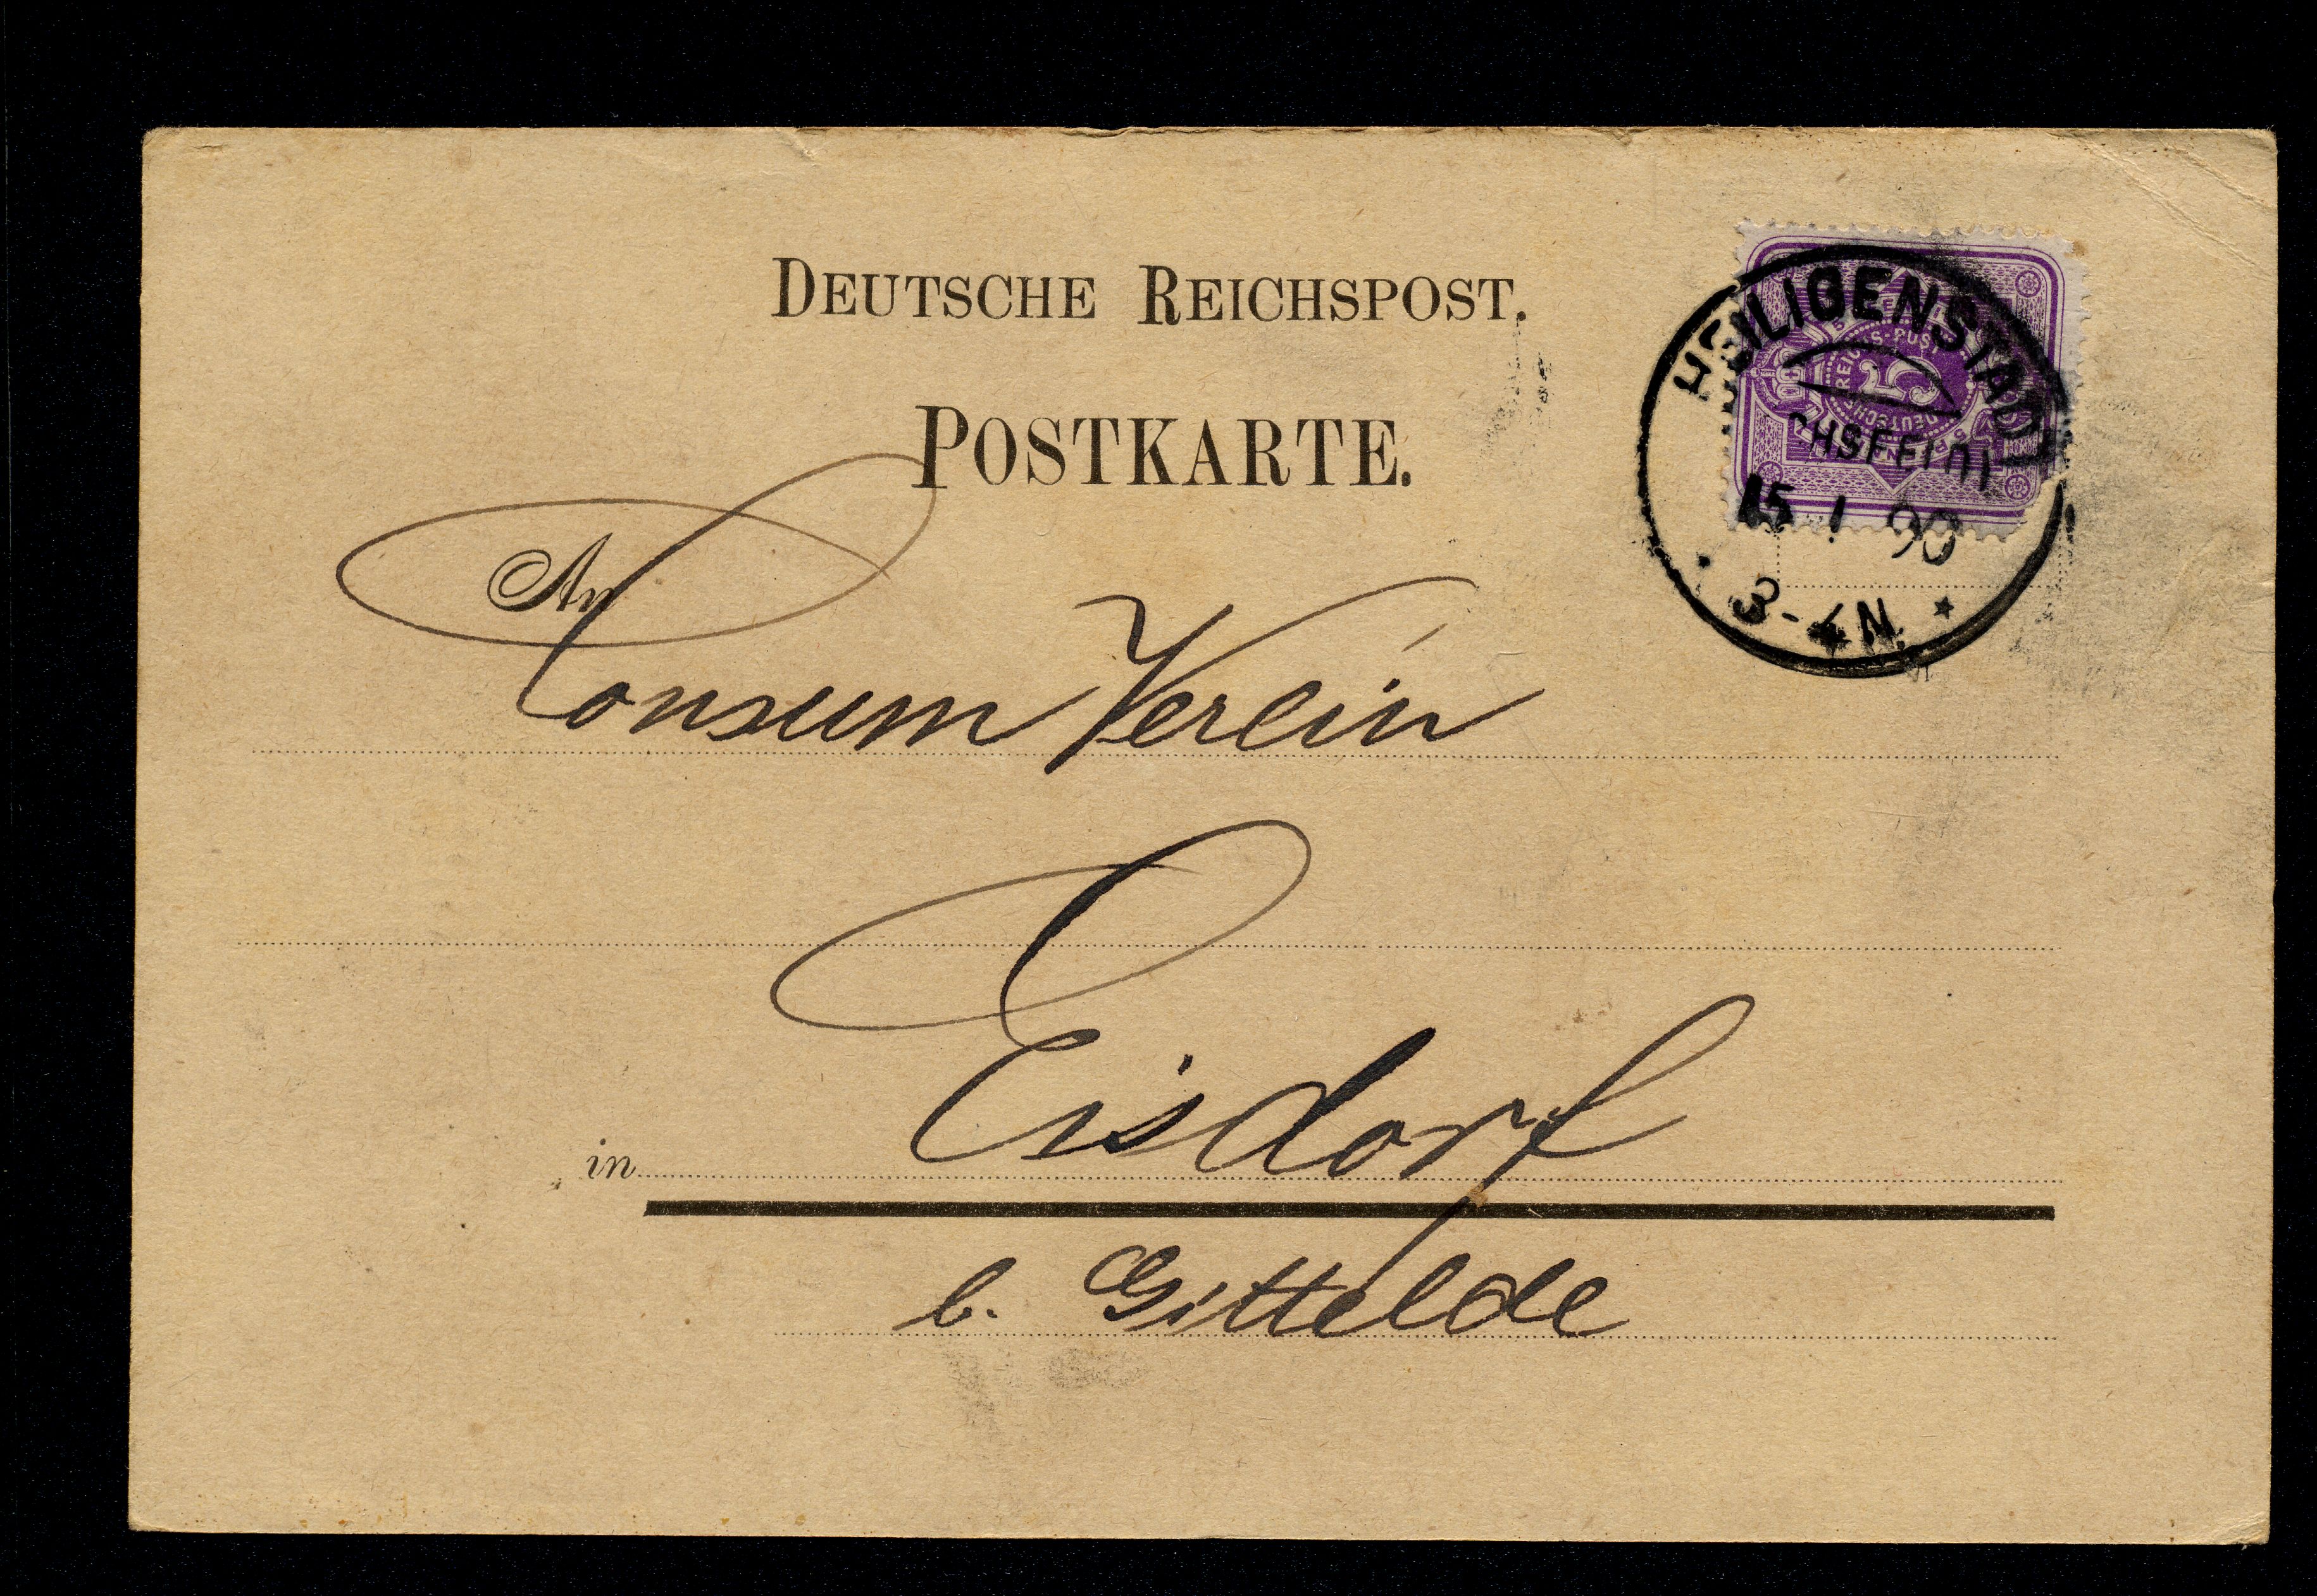 DEUTSCHE REICHSPOST.
POSTKARTE.
HEILIGENSTADT
CHSFELD)
15 1 90
3-4N.
REICHS-POST
5
An
Consum Verein
in Eisdorf
b. Gittelde